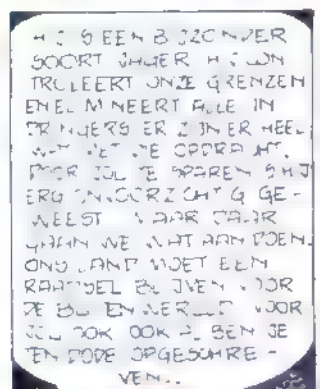 HIJ IS EEN BIJZONDER
SOORT JAGER HIJ CON
TROLEERT ONZE GRENZEN
EN ELIMINEERT ALLE IN
DRINGERS ER ZIJN ER HEEL
WAT MET DIE OPDRACHT.
DOOR JOU TE SPAREN IS HIJ
ERG ONVOORZICHTIG GE-
WEEST MAAR DAAR
GAAN WE WAT AAN DOEN.
ONS LAND MOET EEN
RAADSEL BLIJVEN VOOR
DE BUITENWERELD VOOR
JOU OOK OOK AL BEN JE
TEN DODE OPGESCHRE-
VEN..